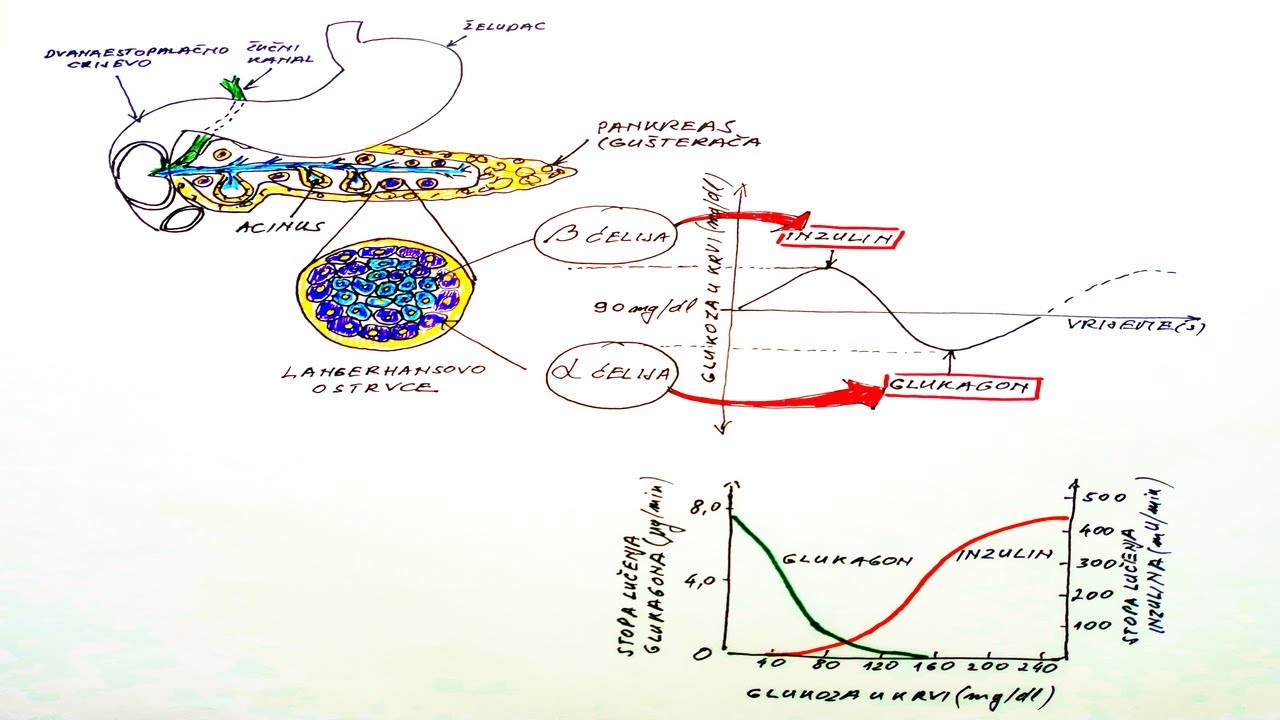 DVANAESTOPALAČNO
CRIJEVO
ŽUČNI
KANAL
ŽELUDAC
PANKREAS
(GUŠTERAČA
ACINUS
LANGERHANSOVO
OSTRVCE
β ĆELIJA
α ĆELIJA
GLUKOZA U KRVI (mg/dl)
90 mg/dl
INZULIN
VRIJEME (s)
GLUKAGON
STOPA LUČENJA
GLUKAGONA (μg/min)
8,0
4,0
0
GLUKAGON
INZULIN
500
400
300
200
100
STOPA LUČENJA
INZULINA (mU/min)
40 80 120 160 200 240
GLUKOZA U KRVI (mg/dl)